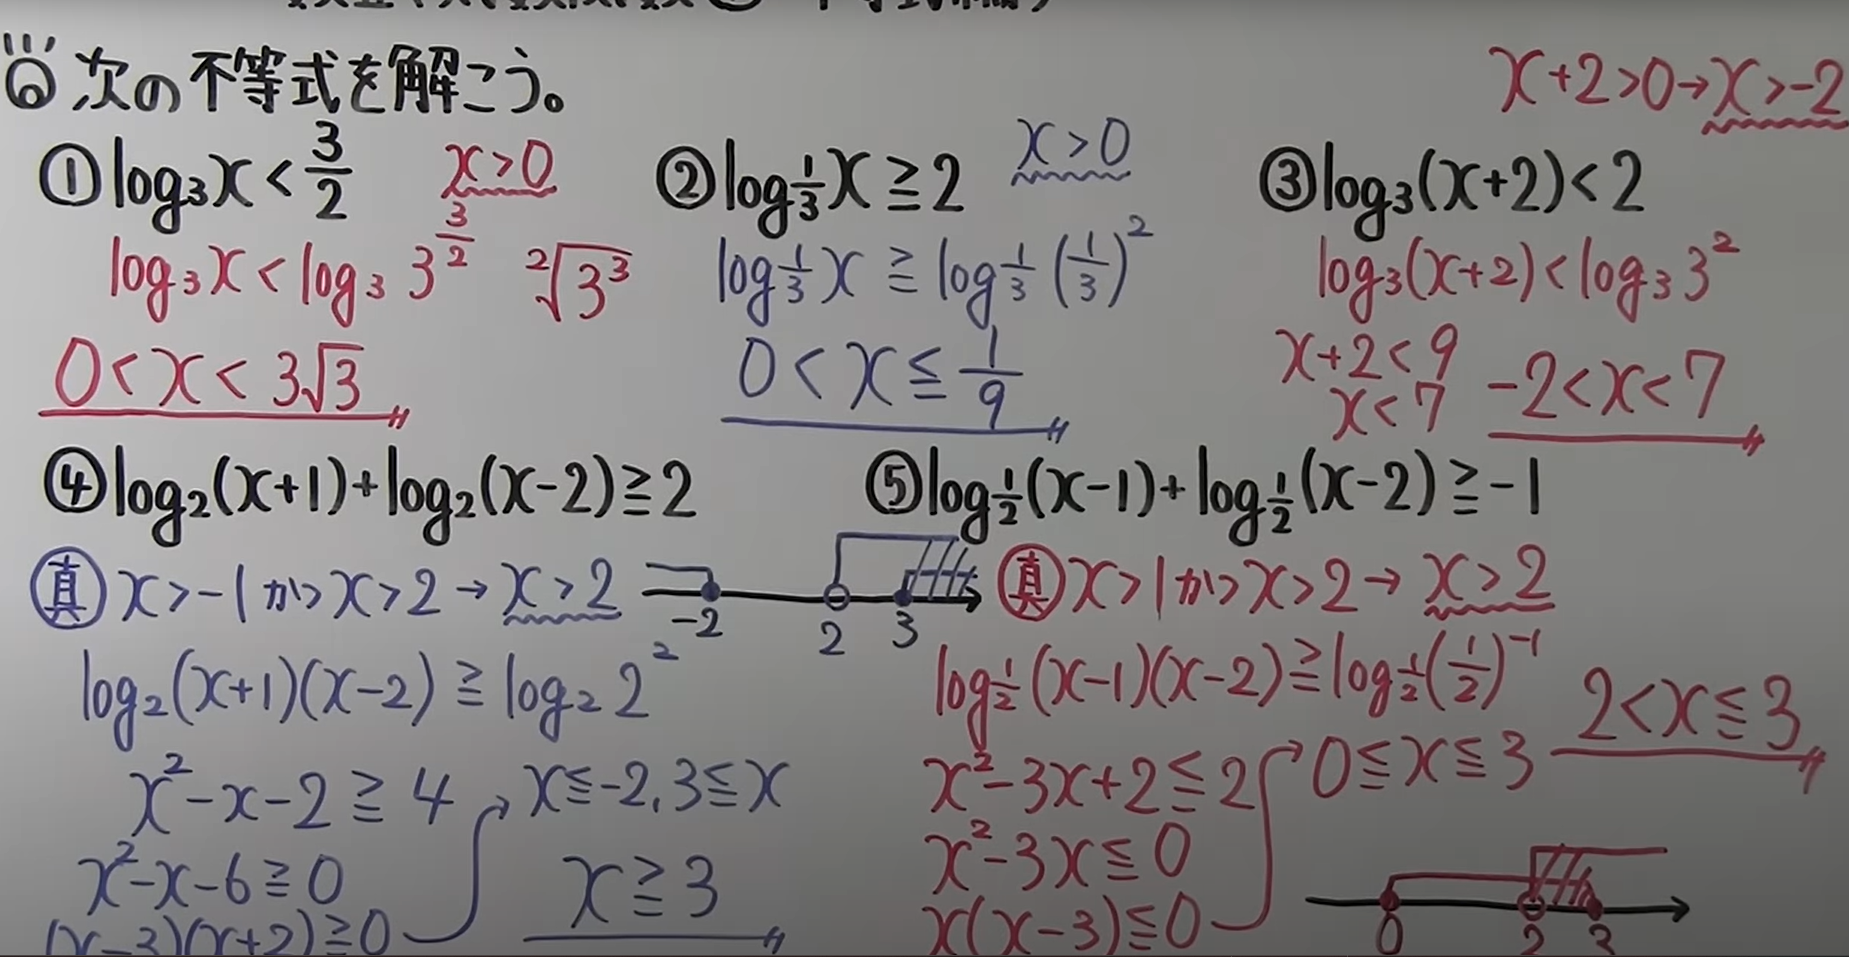 次の不等式を解こう。
① log₃x < 3/2
x>0
log₃x < log₃3^(3/2)
²√3³
0 < x < 3√3
② log_(1/3) x ≧ 2
x>0
log_(1/3) x ≧ log_(1/3) (1/3)²
0 < x ≦ 1/9
x+2>0→x>-2
③ log₃(x+2) < 2
log₃(x+2) < log₃3²
x+2<9
x<7
-2<x<7
④ log₂(x+1)+log₂(x-2)≧2
真 x>-1かつx>2→x>2
-2 2 3
log₂(x+1)(x-2) ≧ log₂2²
x²-x-2≧4
x²-x-6≧0
(x-3)(x+2)≧0
x≦-2, 3≦x
x≧3
⑤ log_(1/2) (x-1)+log_(1/2) (x-2)≧-1
真 x>1かつx>2→x>2
log_(1/2) (x-1)(x-2)≧log_(1/2) (1/2)⁻¹
x²-3x+2≦2
x²-3x≦0
x(x-3)≦0
0≦x≦3
2<x≦3
0 2 3